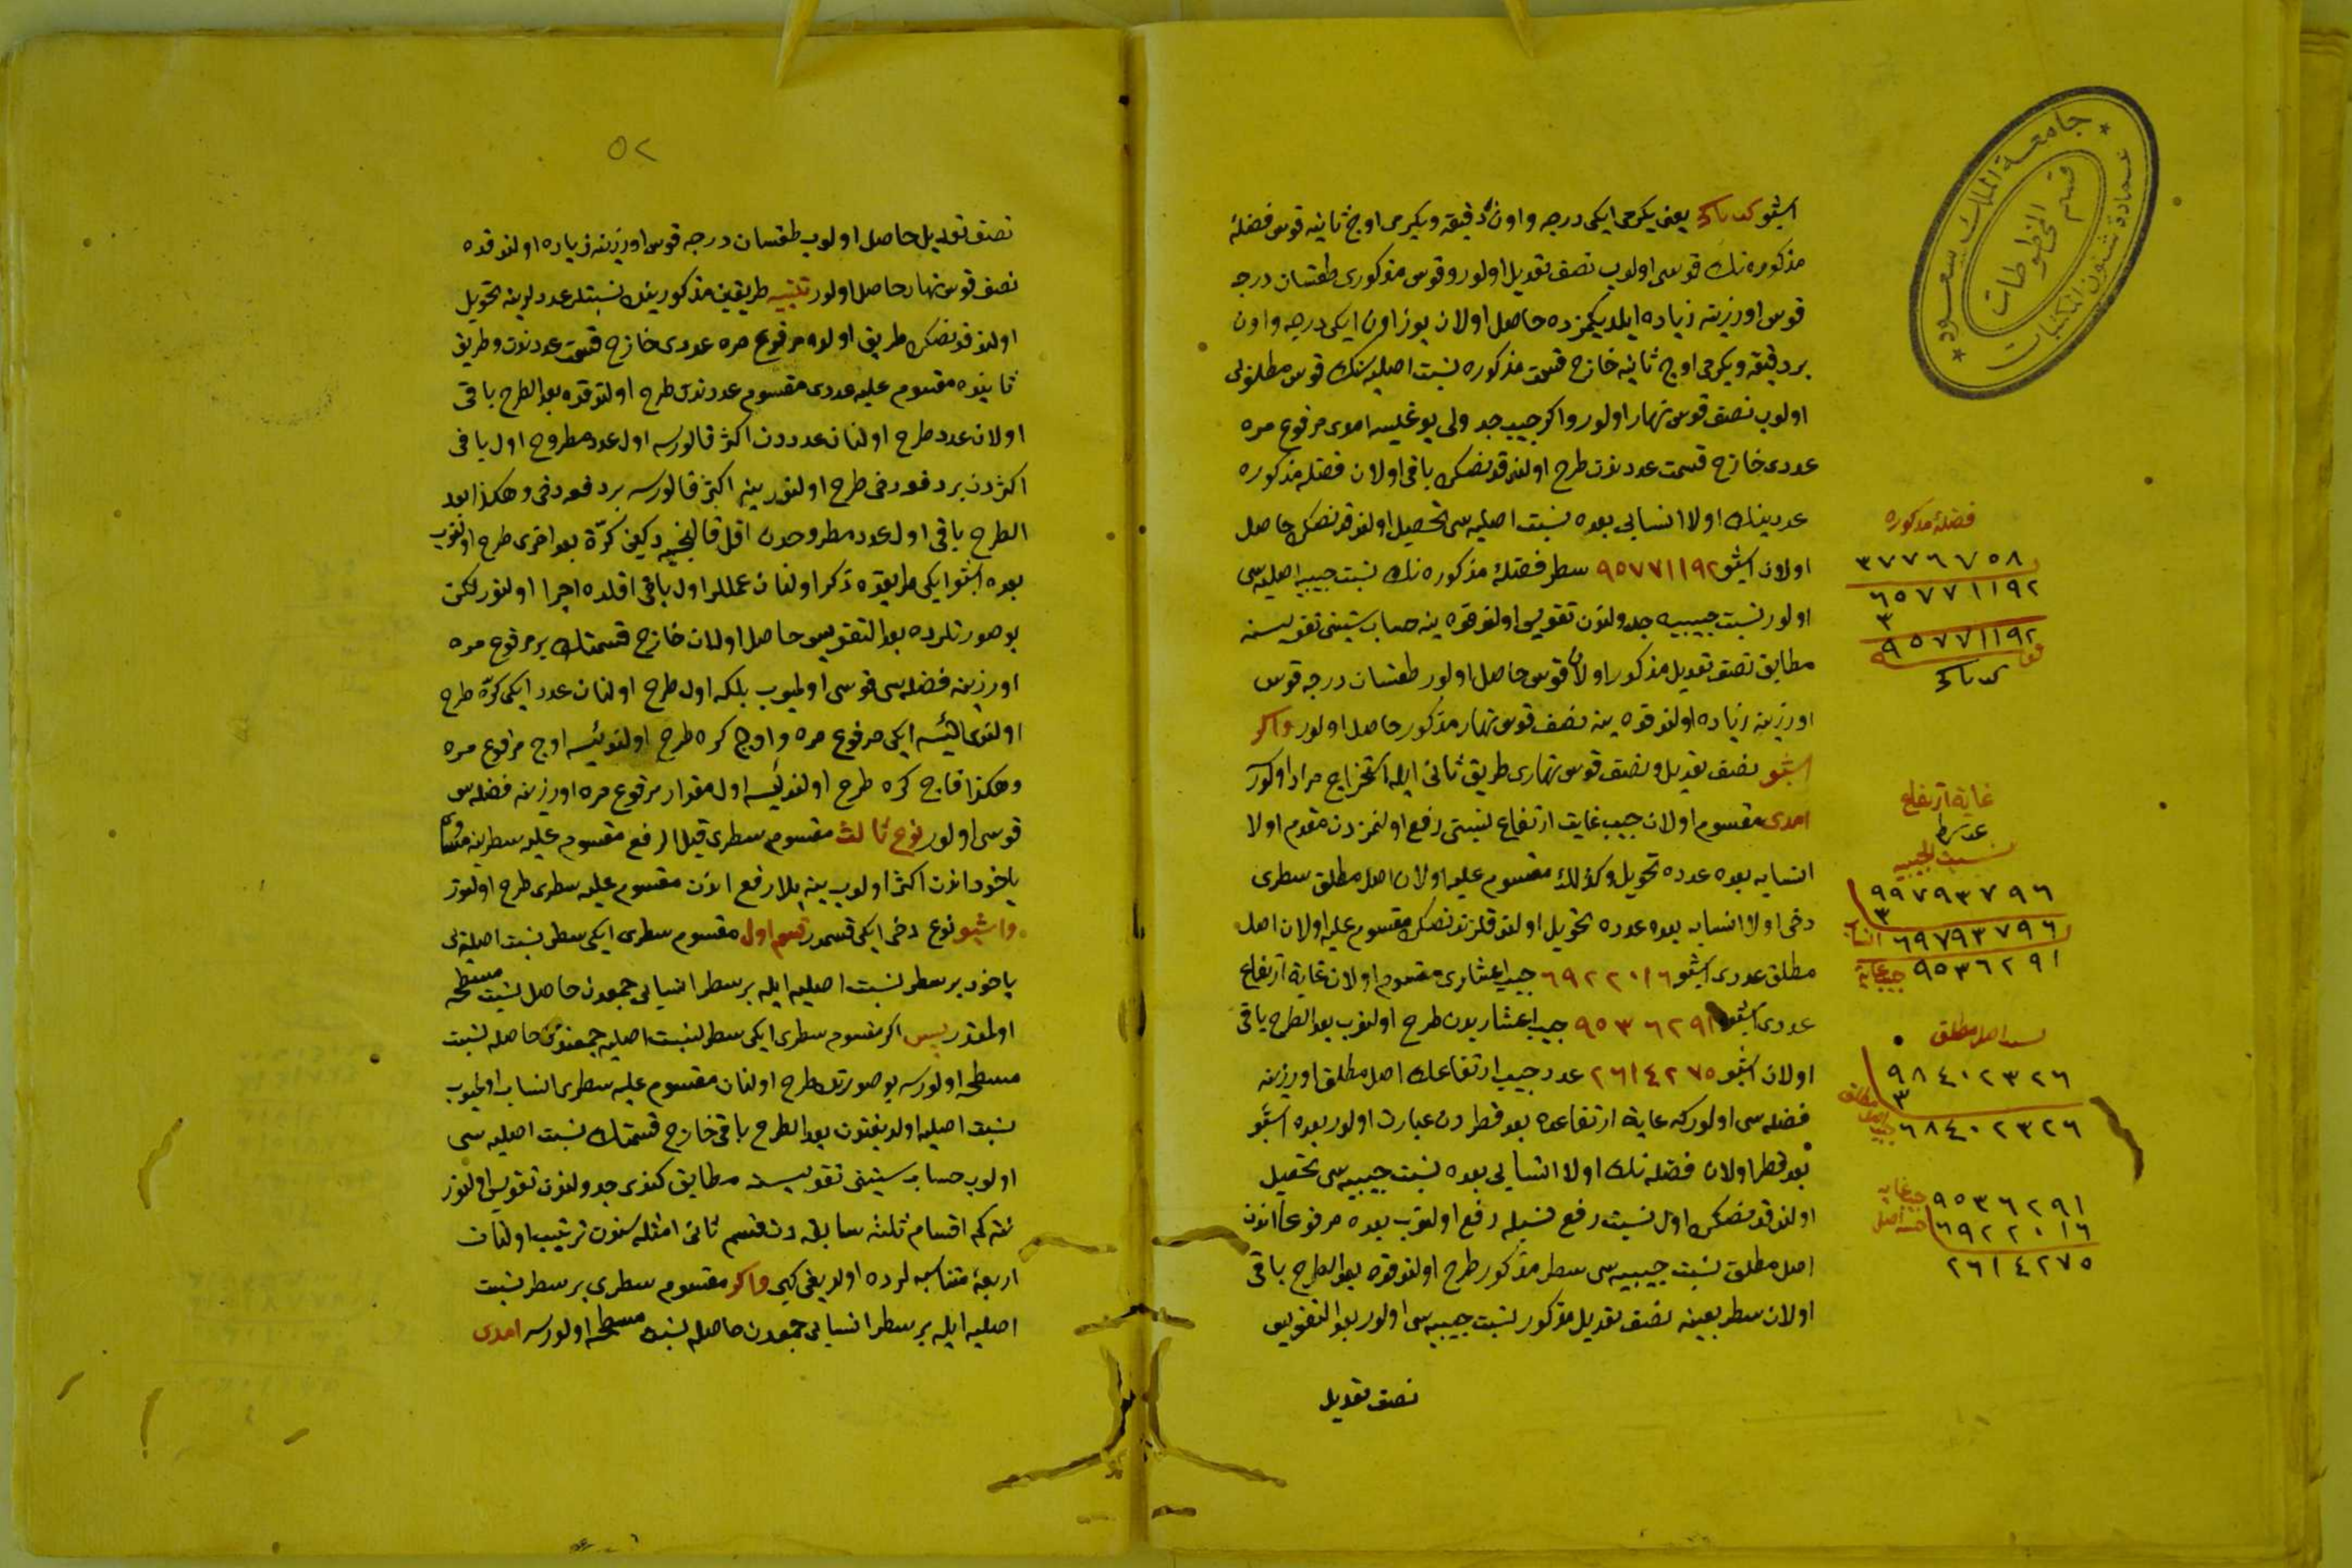 جامعة الملك سعود
عمادة شئون المكتبات
قسم المخطوطات
اشبو يعنى يكرمى ايكى درجه واون دقيقه ويكرمى اوج ثانيه قوس فضلهٔ
مذكوره نك قوسى اولوب نصف تعديل اولور وقوس مذكورى طقسان درجه
قوس اوزرينه زياده ايلديكمزده حاصل اولان يوز اون ايكى درجه واون
بر دقيقه ويكرمى اوج ثانيه خارج قسمت مذكوره نسبت اصليه سنك قوس مطلوبى
اولوب نصف قوس نهار اولور واكر جيب جدولى يوغيسه امدى مرفوع مره
عددى خارج قسمت عددندن طرح اولندقدنصكره باقى اولان فضله مذكوره
عددينك اولا انسابى بعده نسبت اصليه سى تحصيل اولندقدنصكره حاصل
اولان اشبو ٩٥٧٧١١٩٢ سطر فضلهٔ مذكوره نك نسبت جيبيه اصليه سى
اولور نسبت جيبيه جدولندن تقويس اولندقده ينه حساب ستينى تقويسنه
مطابق نصف تعديل مذكور اولان قوس حاصل اولور طقسان درجه قوس
اوزرينه زياده اولندقده ينه نصف قوس نهار مذكور حاصل اولور واكر
اشبو نصف تعديل ونصف قوس نهارى طريق ثانى ايله استخراج مراد اولنور
امدى مقسوم اولان جيب غايت ارتفاع نسبتى رفع اولنمزدن مقدم اولا
انسابه بعده عدده تحويل وكذلك مقسوم عليه اولان اصل مطلق سطرى
دخى اولا انسابه بعده عدده تحويل اولندقلرندنصكره مقسوم عليه اولان اصل
مطلق عددى اشبو ٦٩٢٢٠١٦ جيب اعشارى مقسوم اولان غاية ارتفاع
عددى اشبو ٩٥٣٦٢٩١ جيب اعشاريدن طرح اولنوب بعد الطرح باقى
اولان اشبو ٢٦١٤٢٧٥ عدد جيب ارتفاعك اصل مطلق اوزرينه
فضله سى اولور كه غاية ارتفاعده بعد قطردن عبارت اولور بعده اشبو
بعد قطر اولان فضله نك اولا انسابى بعده نسبت جيبيه سى تحصيل
اولندقدنصكره اول نسبت رفع نسيله رفع اولنوب بعده مرفوعا اندن
اصل مطلق نسبت جيبيه سى سطر مذكور طرح اولندقده بعد الطرح باقى
اولان سطر بعينه نصف تعديل مذكور نسبت جيبيه سى اولور بعد التقويس
نصف تعديل
فضلهٔ مذكوره
٣٧٧٦٧٥٨
٦٥٧٧١١٩٢
٣
٩٥٧٧١١٩٢
غاية ارتفاع
نسبت الجيبيه
٩٩٧٩٣٧٩٦
٣
٦٩٧٩٣٧٩٦ انساب
٩٥٣٦٢٩١ جيب غاية
اصل مطلق
٩٨٤٠٢٣٢٦
٣
٦٨٤٠٢٣٢٦
٩٥٣٦٢٩١ جيب غايه
٦٩٢٢٠١٦
٢٦١٤٢٧٥
٥٢
نصف تعديل حاصل اولوب طقسان درجه قوس اوزرينه زياده اولندقده
نصف قوس نهار حاصل اولور تنبيه طريقين مذكورينك نسبتلر عددلرينه تحويل
اولندقدنصكره طريق اولده مرفوع مره عددى خارج قسمت عددندن وطريق
ثانيده مقسوم عليه عددى مقسوم عددندن طرح اولندقده بعد الطرح باقى
اولان عدد طرح اولنان عدددن اكثر قالورسه اول عدد مطروح اول باقى
اكثردن بر دفعه دخى طرح اولنور ينه اكثر قالورسه بر دفعه دخى وهكذا بعد
الطرح باقى اول عدد مطروحدن اقل قالنجيه دكين كرّة بعد اخرى طرح اولنوب
بعده اشبو ايكى طريقده ذكر اولنان عمللر اول باقى اقلده اجرا اولنور لكن
بو صورتلرده بعد التقويس حاصل اولان خارج قسمتك بر مرفوع مره
اوزرينه فضله سى قوسى اولميوب بلكه اول طرح اولنان عدد ايكى كرّه طرح
ايكى مرفوع مره واوج كره طرح اولنديسه اوج مرفوع مره
وهكذا قاج كره طرح اولنديسه اول مقدار مرفوع مره اوزرينه فضله سى
قوسى اولور نوع ثالث مقسوم سطرى قبل الرفع مقسوم عليه سطرينه مساوى
ياخود اندن اكثر اولوب ينه بلا رفع اندن مقسوم عليه سطرى طرح اولنور
واشبو نوع دخى ايكى قسمدر قسم اول مقسوم سطرى ايكى سطر نسبت اصليه نك
ياخود بر سطر نسبت اصليه ايله بر سطر انسابى جمعدن حاصل نسبت مسطحه
اولمقدر پس اكر مقسوم سطرى ايكى سطر نسبت اصليه جمعندن حاصله نسبت
مسطحه اولورسه بو صورتده طرح اولنان مقسوم عليه سطرى انساب اولميوب
نسبت اصليه اولديغندن بعد الطرح باقى خارج قسمتك نسبت اصليه سى
اولوب حساب ستينى تقويسنه مطابق كندى جدولندن تقويس اولنور
نته كم اقسام ثلثه سابقه دن قسم ثانى امثله سندن ترتيب اولنان
اربعهٔ متناسبه لرده اولديغى كبى واكر مقسوم سطرى بر سطر نسبت
اصليه ايله بر سطر انسابى جمعدن حاصله نسبت مسطحه اولورسه امدى